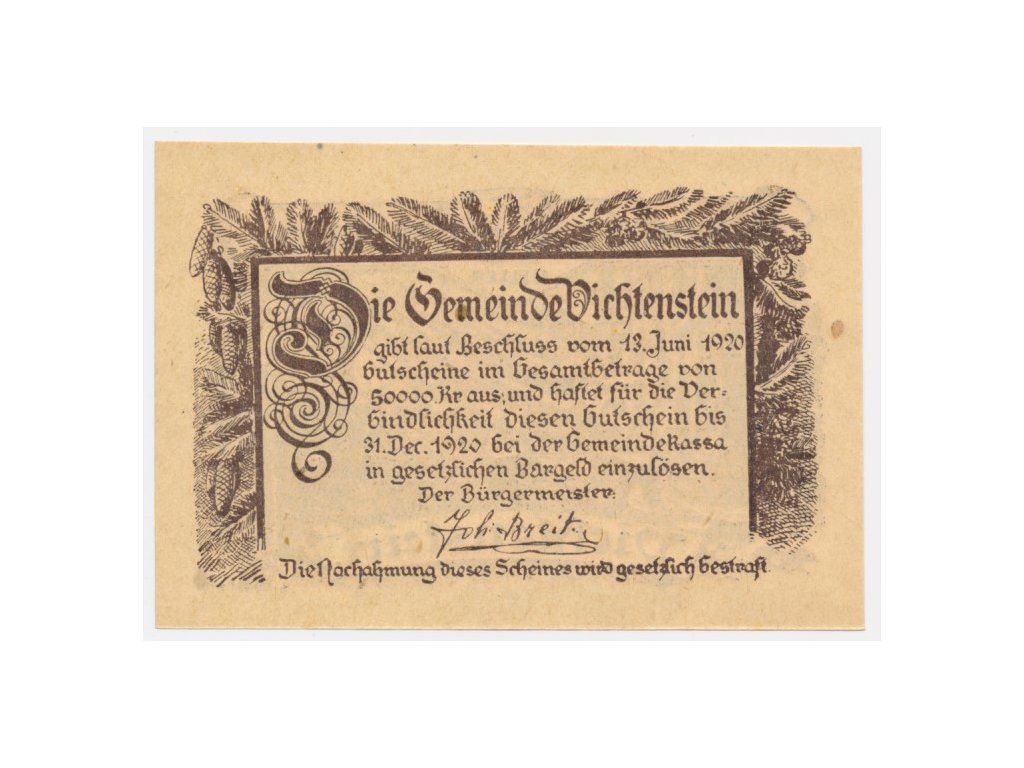 Die Gemeinde Vichtenstein
gibt laut Beschluss vom 13. Juni 1920
Gutscheine im Gesamtbetrage von
50000 Kr aus, und haftet für die Ver-
bindlichkeit diesen Gutschein bis
31. Dec. 1920 bei der Gemeindekassa
in gesetzlichen Bargeld einzulösen.
Der Bürgermeister:
Joh. Breit.
Die Nachahmung dieses Scheines wird gesetzlich bestraft.